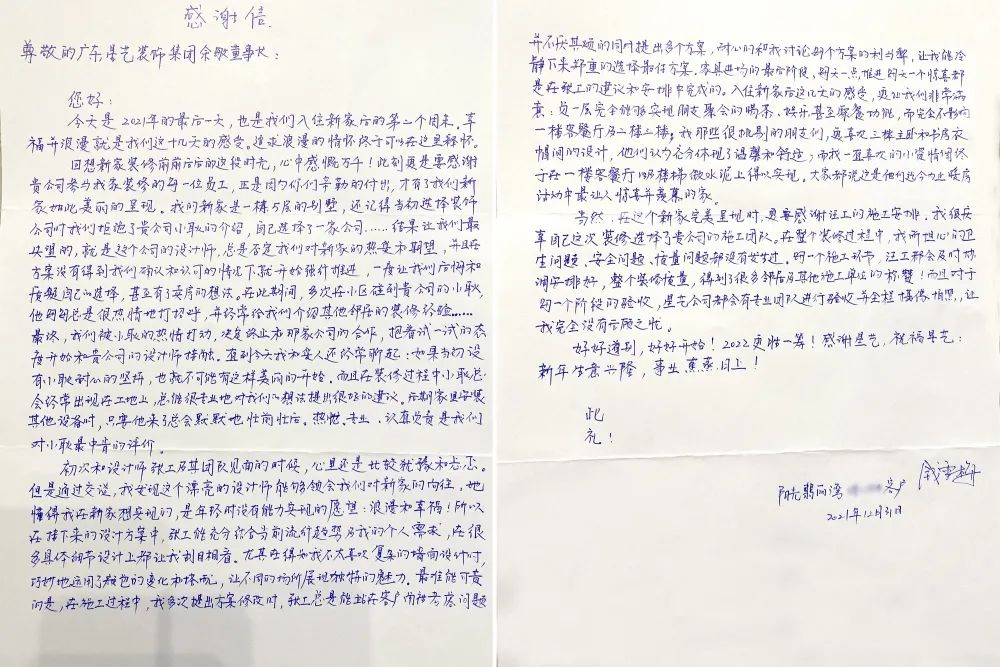 感谢信
尊敬的广东星艺装饰集团余敏董事长：
您好：
今天是2021年的最后一天，也是我们入住新家后的第二个周末。幸
福并浪漫就是我们这么多天的感受。追求浪漫的情怀终于可以在这里释怀。
回想新家装修前前后后的这段时光，心中感慨万千！此刻更是要感谢
贵公司参与我家装修的每一位员工，正是因为你们辛勤的付出，才有了我们新
家如此美丽的呈现。我们新家是一栋5层的别墅，还记得当初选择装饰
公司时我们拒绝了贵公司小耿的介绍，自己选择了一家公司……结果让我们最
失望的，就是这个公司的设计师，总是否定我们对新家的热爱和期望，并且在
方案没有得到我们确认和认可的情况下就开始硬件推进，一度让我们后悔和
质疑自己的选择，甚至有了卖房的想法。在此期间，多次在小区碰到贵公司的小耿，
他每每总是很热情地打招呼，并经常给我们介绍其他邻居的装修经验……
最终，我们被小耿的热情打动，决定终止和那家公司的合作，抱着试一试的态
度开始和贵公司的设计师接触。直到今天我和爱人还经常聊起：如果当初没
有小耿耐心的坚持，也就不可能有这样美丽的开始。而且在装修过程中小耿总
会经常出现在工地上，总能很专业地对我们的想法提出很好的建议。后期家具安装
其他设备时，只要他来了总会默默地忙前忙后。热忱、专业、认真负责是我们
对小耿最中肯的评价。
初次和设计师张工及其团队见面的时候，心里还是比较犹豫和忐忑。
但是通过交谈，我发现这个漂亮的设计师能够领会我们对新家的向往，她
懂得我在新家想实现的，是年轻时没有能力实现的愿望：浪漫和幸福！所以
在接下来的设计方案中，张工能充分结合当前流行趋势及我的个人需求，在很
多具体细节设计上都让我刮目相看。尤其在得知我不太喜欢复杂的墙面设计时，
巧妙地运用了颜色的变化和搭配，让不同的场所展现独特的魅力。最难能可贵
的是，在施工过程中，我多次提出方案修改时，张工总是能站在客户角度考虑问题
并不厌其烦的同时提出多个方案，耐心的和我讨论每个方案的利与弊，让我能冷
静下来郑重的选择最佳方案。家具进场的最后阶段，每天一点推进每天一个惊喜都
是在张工的建议和安排中完成的。入住新家后这几天的感受，更让我们非常满
意：负一层完全能够实现朋友聚会的喝茶、娱乐甚至聚餐功能，而完全不影响
一楼客餐厅及二楼三楼，我那些很挑剔的朋友们，更喜欢三楼主卧和书房衣
帽间的设计，他们认为充分体现了温馨和舒适；而我一直喜欢的小资情调终
于在一楼客餐厅以及楼梯做水泥上得以实现。大家都说这是他们迄今为止暖房
活动中最让人惊喜并羡慕的家。
当然，在这个新家完美呈现时，更要感谢汪工的施工安排。我很庆
幸自己这次装修选择了贵公司的施工团队。在整个装修过程中，我所担心的卫
生问题、安全问题、质量问题都没有发生过。每一个施工环节，汪工都会及时协
调安排好，整个装修质量，得到很多邻居及其他施工单位的称赞！而且对于
每一个阶段的验收，星艺公司都会有专业团队进行验收并全程摄像拍照，让
我完全没有后顾之忧。
好好道别，好好开始！2022更胜一筹！感谢星艺，祝福星艺：
新年生意兴隆，事业蒸蒸日上！
此
礼！
阳光翡丽湾 客户
2021年12月31日